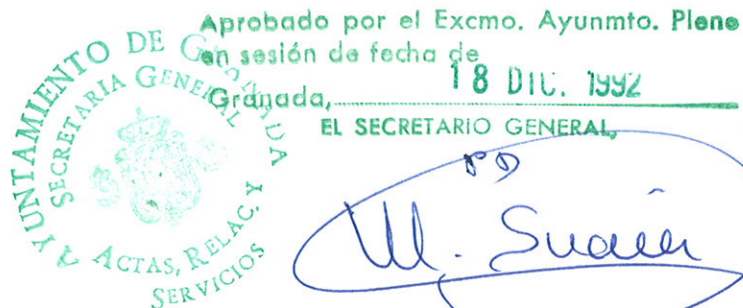 Aprobado por el Excmo. Ayunmto. Pleno
en sesión de fecha de
18 DIC. 1992
Granada,
EL SECRETARIO GENERAL,
PD
AYUNTAMIENTO DE GRANADA
SECRETARIA GENERAL
ACTAS, RELAC. Y
SERVICIOS